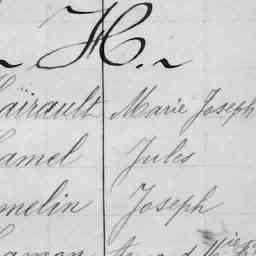 ~ H. ~
aïrault Marie Joseph
amel Jules
melin Joseph